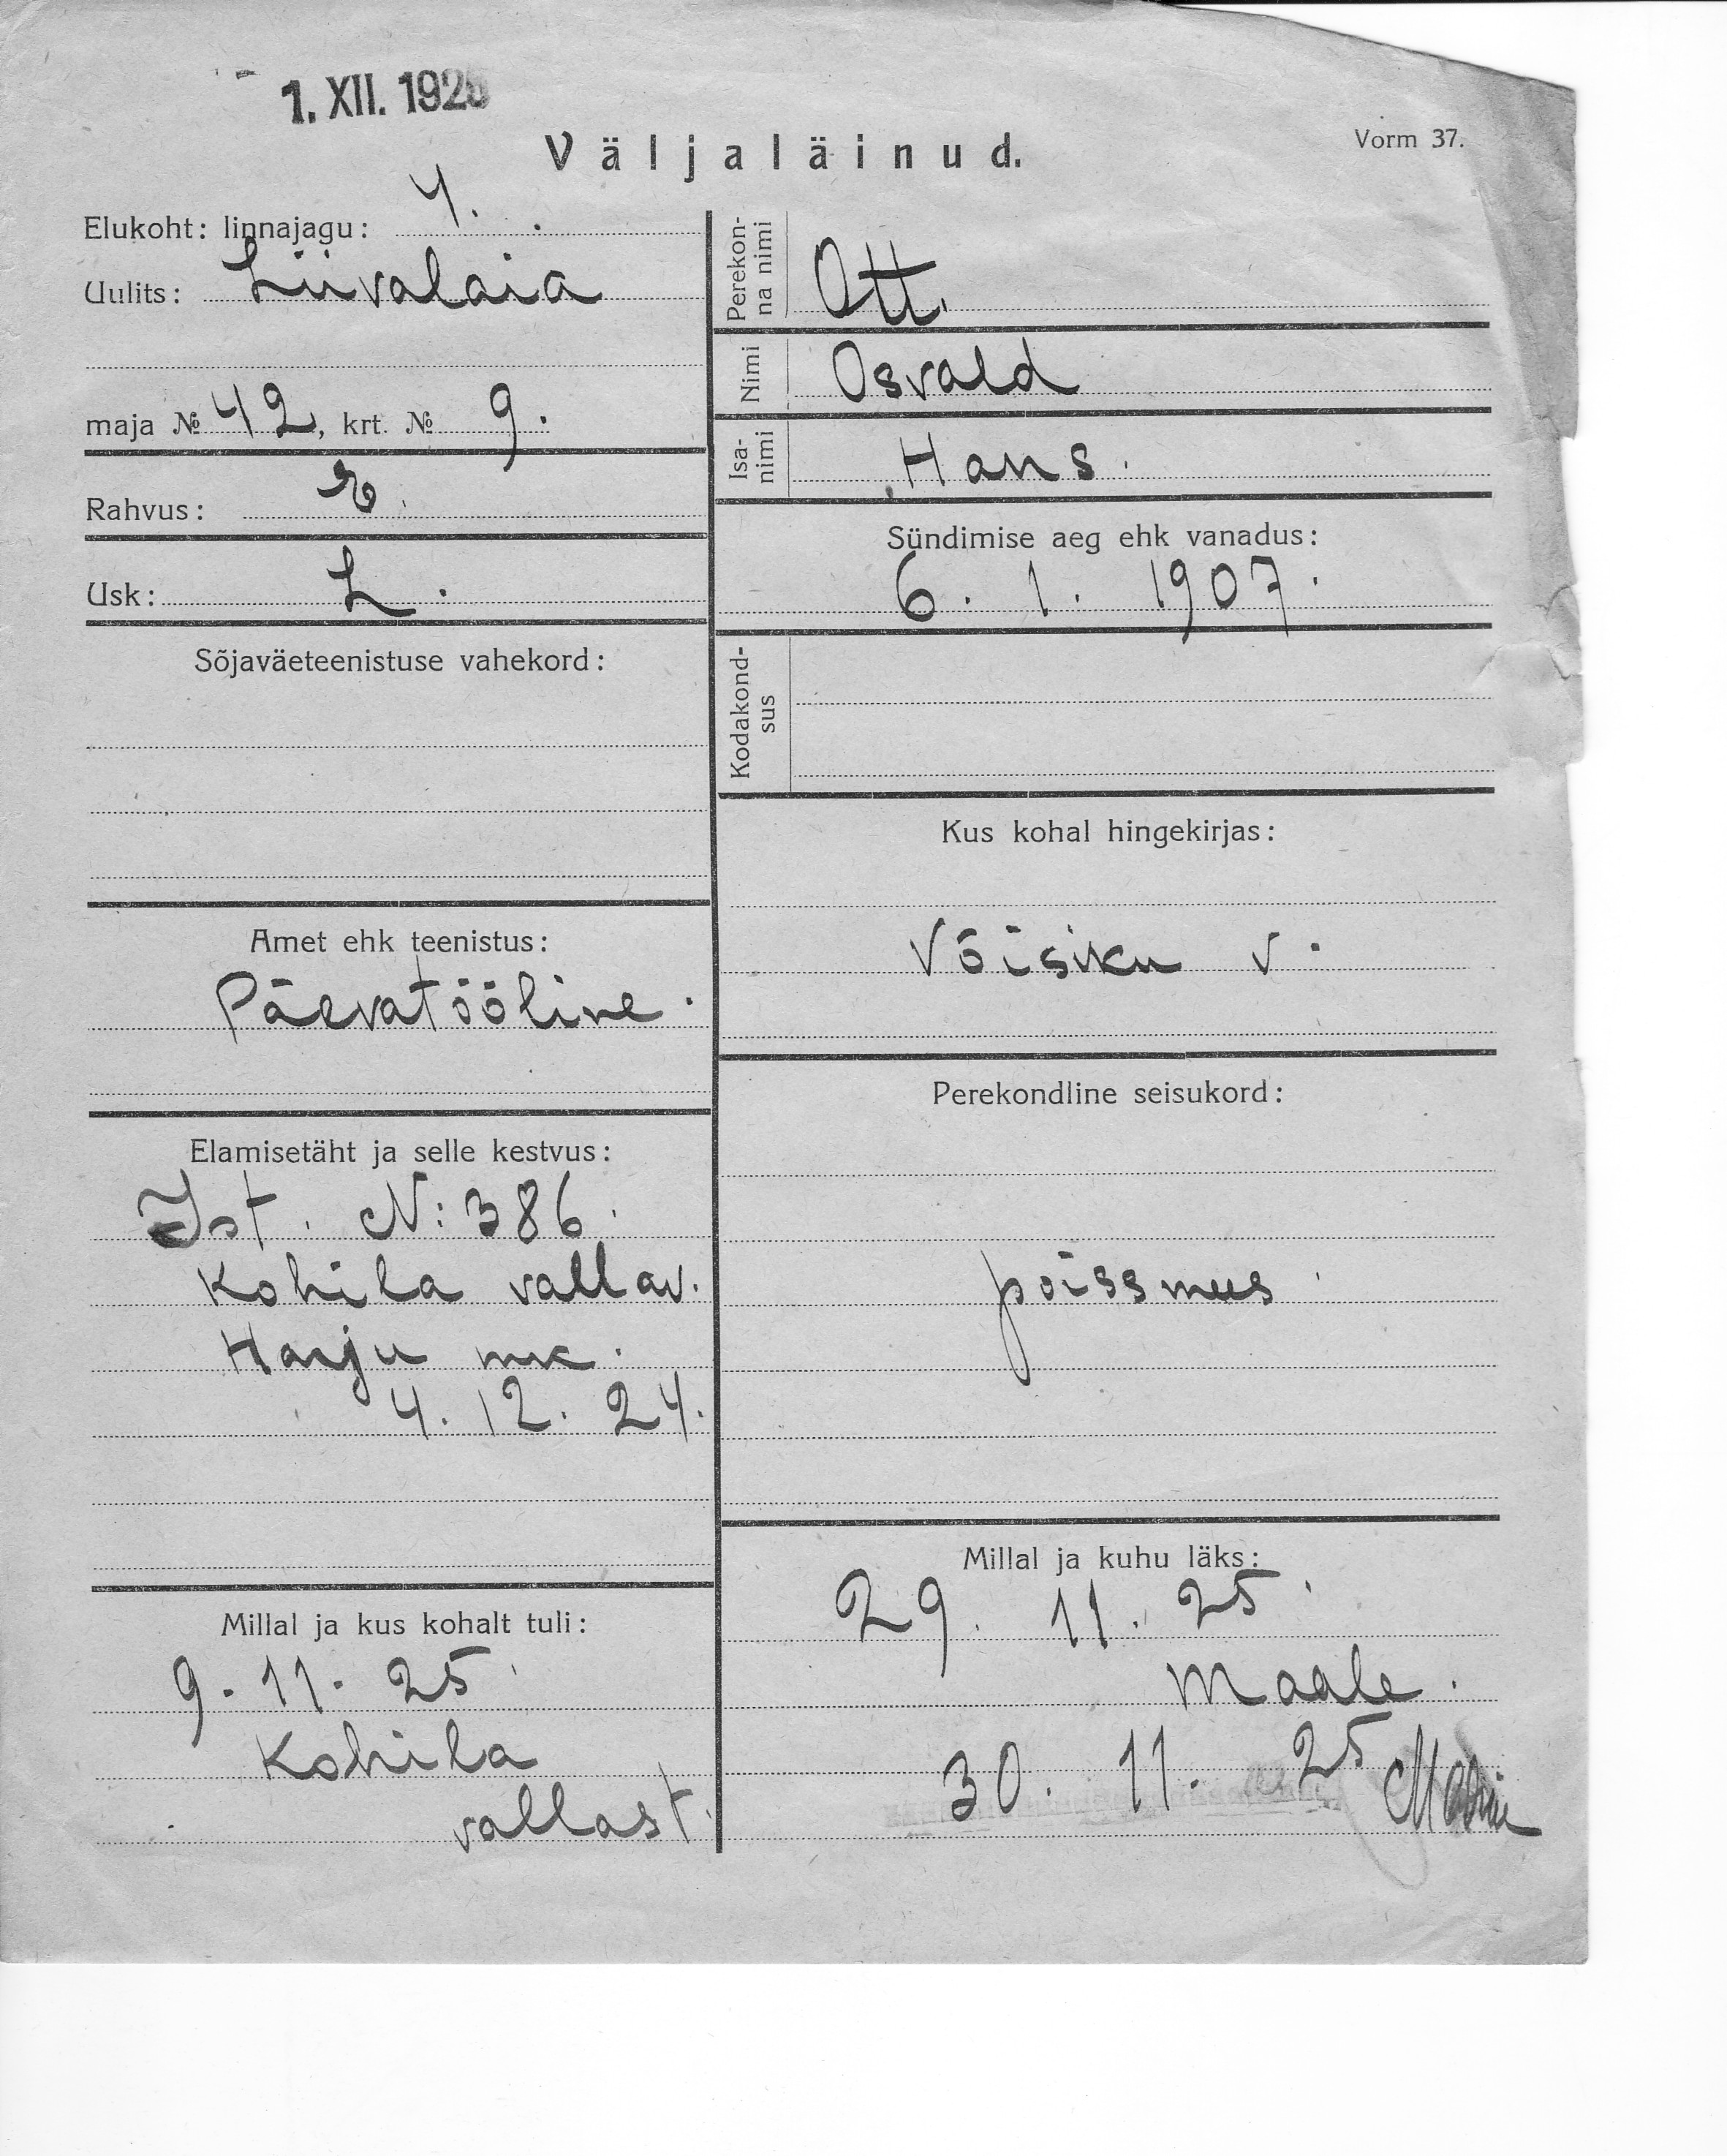 1. XII. 1925
Väljaläinud.
Vorm 37.
Elukoht: linnajagu: 4.
Uulits: Liivalaia
maja № 42, krt. № 9.
Rahvus: E.
Usk: L.
Sõjaväeteenistuse vahekord:
Amet ehk teenistus:
Päevatööline.
Elamisetäht ja selle kestvus:
Ist. N: 386.
Kohila vallav.
Harju mk.
4. 12. 24.
Millal ja kus kohalt tuli:
9. 11. 25.
Kohila
vallast.
Perekonna nimi
Ott.
Nimi
Osvald
Isanimi
Hans.
Sündimise aeg ehk vanadus:
6. 1. 1907.
Kodakondsus
Kus kohal hingekirjas:
Võisiku v.
Perekondline seisukord:
poissmees.
Millal ja kuhu läks:
29. 11. 25.
Maale.
30. 11. 25